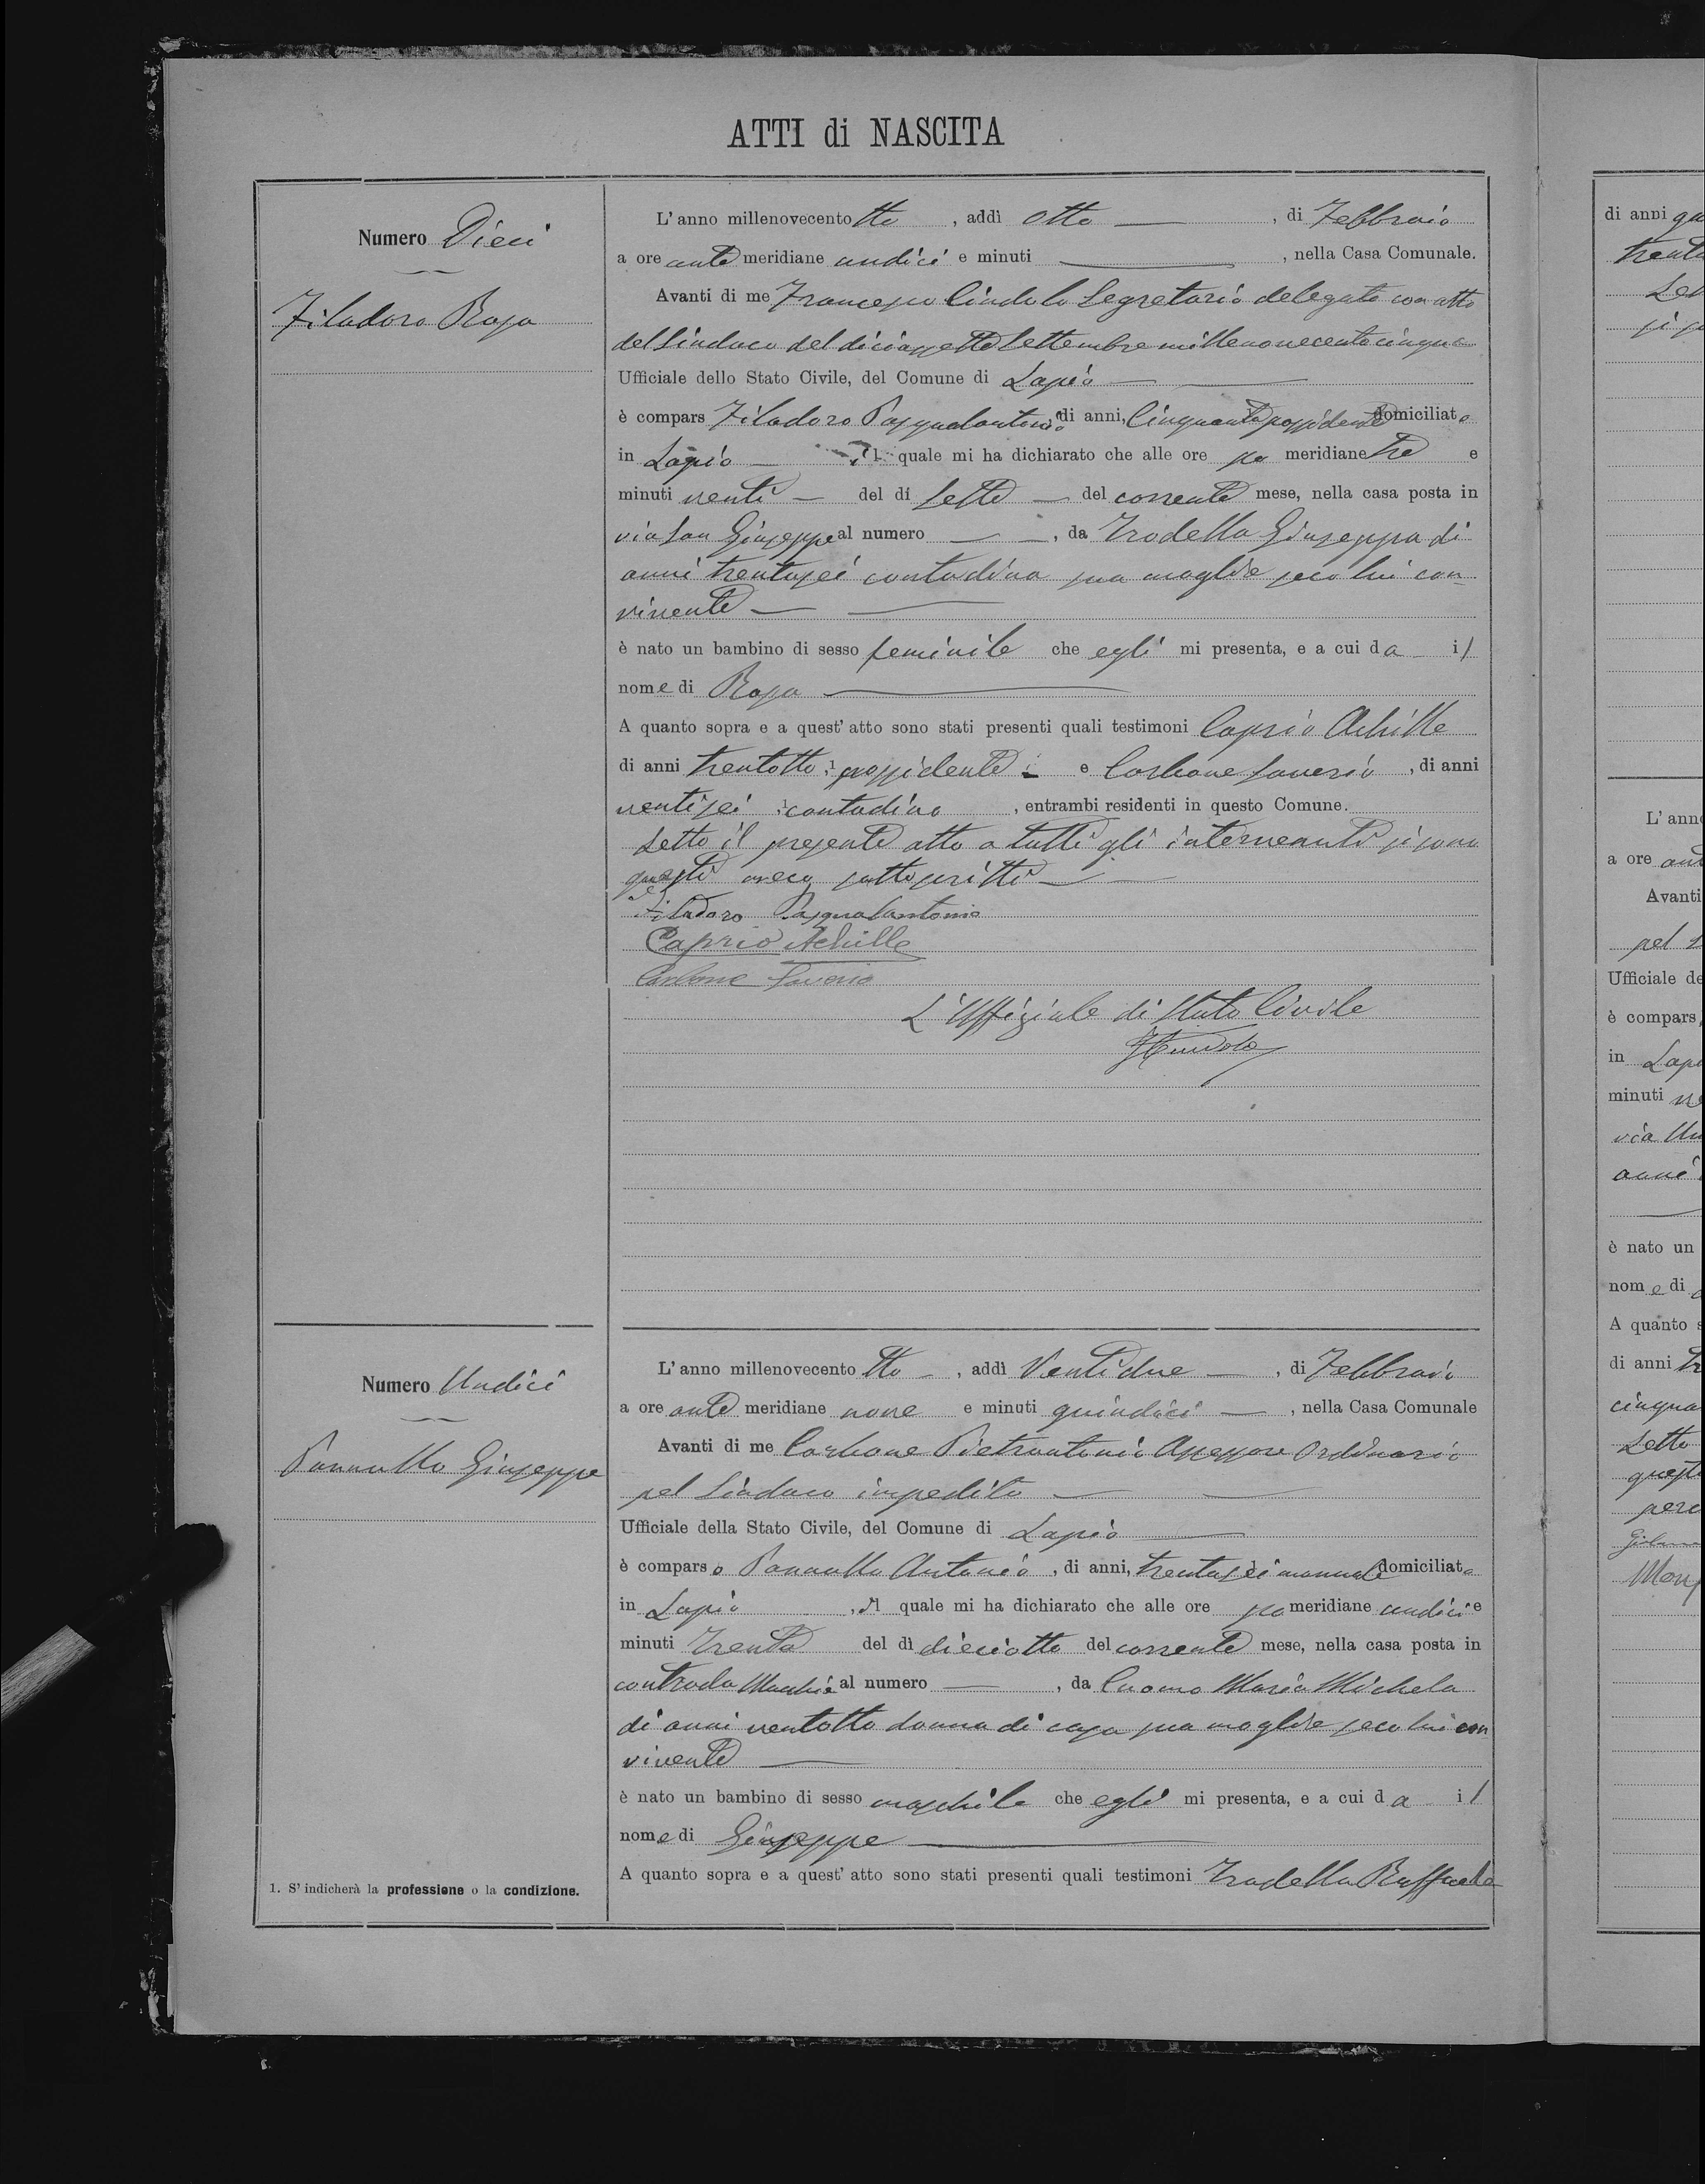 ATTI di NASCITA
Numero Dieci
Filadoro Rosa
L'anno millenovecentotto, addì Otto, di Febbraio
a ore ante meridiane undici e minuti, nella Casa Comunale.
Avanti di me Francesco Cindolo Segretario delegato con atto
del Sindaco del diciassette Settembre millenovecentocinque
Ufficiale dello Stato Civile, del Comune di Lapio
è compars Filadoro Pasqualantonio, di anni, Cinquanta possidente domiciliato
in Lapio il quale mi ha dichiarato che alle ore po meridiane tre e
minuti venti del dí Sette del corrente mese, nella casa posta in
via San Giuseppe al numero, da Trodella Giuseppa di
anni trentasei contadina sua moglie seco lui con
vivente
è nato un bambino di sesso feminile che egli mi presenta, e a cui da il
nome di Rosa
A quanto sopra e a quest'atto sono stati presenti quali testimoni Caprio Achille
di anni trentotto, possidente e Carbone Saverio, di anni
ventisei contadino, entrambi residenti in questo Comune.
Letto il presente atto a tutti gli intervenuti si sono
questi meco sottoscritti
Filadoro Pasqualantonio
Caprio Achille
Carbone Saverio
L'Uffiziale di Stato Civile
FCindolo
Numero Undici
Pannullo Giuseppe
L'anno millenovecentotto, addì Ventidue, di Febbraio
a ore ante meridiane nove e minuti quindici, nella Casa Comunale
Avanti di me Carbone Pietrantonio Assessore Ordinario
pel Sindaco impedito
Ufficiale della Stato Civile, del Comune di Lapio
è comparso Pannullo Antonio, di anni, trentasei manuale domiciliato
in Lapio, il quale mi ha dichiarato che alle ore po meridiane undici e
minuti trenta del dì dieciotto del corrente mese, nella casa posta in
contrada Macchia al numero, da Cuomo Maria Michela
di anni ventotto donna di casa sua moglie seco lui con
vivente
è nato un bambino di sesso maschile che egli mi presenta, e a cui da il
nome di Giuseppe
A quanto sopra e a quest'atto sono stati presenti quali testimoni Trodella Raffaele
1. S'indicherà la professione o la condizione.
di anni
trenta
L'ann
a ore
Avanti
pel
Ufficiale de
è compars
in Lapi
minuti
via
anni
è nato un
nome di
A quanto s
di anni
cinqua
Letto
questi